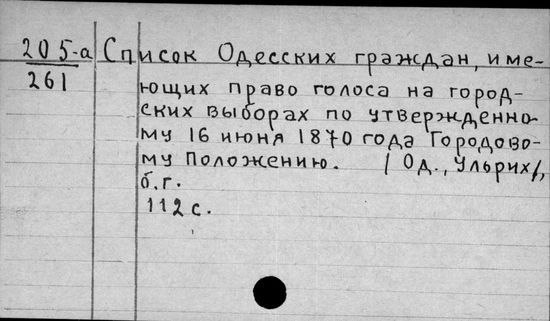 205-а Список Одесских граждан, име-
261
ющих право голоса на город-
ских выборах по утвержденно-
му 16 июня 1870 года Городово-
му Положению. /Од., Ульрих/,
б.г.
112 с.